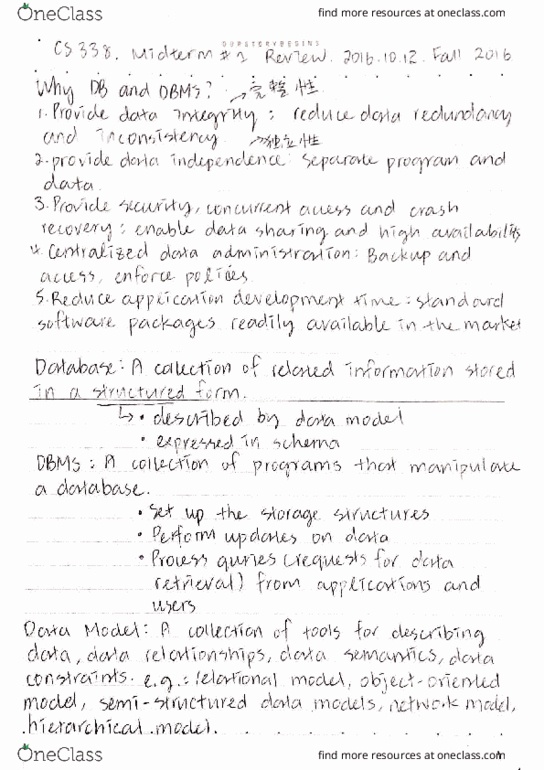 OneClass find more resources at oneclass.com
DOOPSTERYBEGINS
CS 338. Midterm #1 Review. 2016.10.12. Fall 2016
Why DB and DBMS? → 完整性
1. Provide data integrity : reduce data redundancy
and inconsistency. → 独立性
2. provide data independence: separate program and
data.
3. Provide security, concurrent access and crash
recovery : enable data sharing and high availability
4. Centralized data administration: Backup and
access, enforce polices
5. Reduce application development time : standard
software packages readily available in the market
Database: A collection of related information stored
in a structured form.
↳ • described by data model
• expressed in schema
DBMS : A collection of programs that manipulate
a database.
• Set up the storage structures
• Perform updates on data
• Process quries (requests for data
retrieval) from applications and
users
Data Model: A collection of tools for describing
data, data relationships, data semantics, data
constraints. e.g.: relational model, object-oriented
model, semi-structured data models, network model,
hierarchical model.
OneClass find more resources at oneclass.com